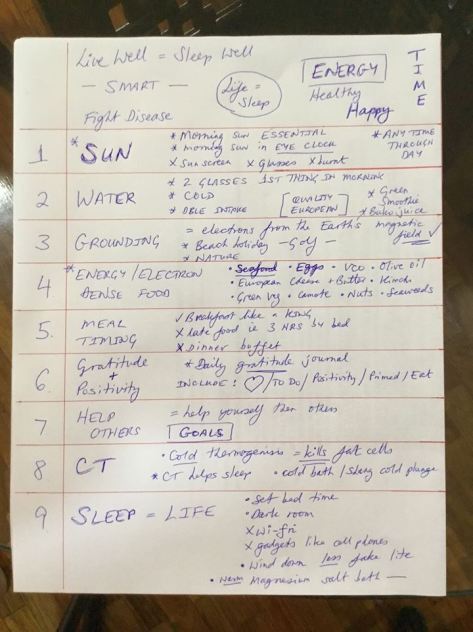 Live Well = Sleep Well
— SMART —
Fight Disease
Life = Sleep
ENERGY
Healthy
Happy
TIME
1 * SUN
* Morning sun ESSENTIAL
* morning sun in EYE CLOCK
x Sunscreen x Glasses x burnt
* ANY TIME THROUGH DAY
2 WATER
* 2 GLASSES 1ST THING IN MORNING
* COLD
* DBLE INTAKE
QUALITY EUROPEAN
* Green Smoothie
3 GROUNDING
= elections from the Earth's magnetic field ✓
* Beach holiday — Golf —
* NATURE
4 * ENERGY / ELECTRON DENSE FOOD
• Seafood • Eggs • VCO • Olive oil
• European Cheese + Butter • Kimchi
• Green veg • camote • Nuts • Seaweeds
5. MEAL TIMING
✓ Breakfast like a KING
x Late food ie 3 HRS b4 bed
x Dinner buffet
6. Gratitude + Positivity
* Daily gratitude journal
INCLUDE: ♡ / TO DO / Positivity / Primed / Eat
7 HELP OTHERS
= help yourself then others
GOALS
8 CT
• Cold thermogenisis = kills fat cells
* CT helps sleep • cold bath / cold plunge
9 SLEEP = LIFE
• Set bed time
• Dark room
x Wi-fi
x gadgets like cell phones
• Wind down less fake lite
• Warm Magnesium salt bath —